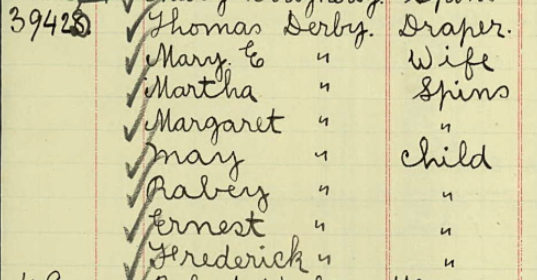 39428 Thomas Derby. Draper.
Mary. E " Wife
Martha " Spins
Margaret " "
May " child
Rabey " "
Ernest " "
Frederick " "